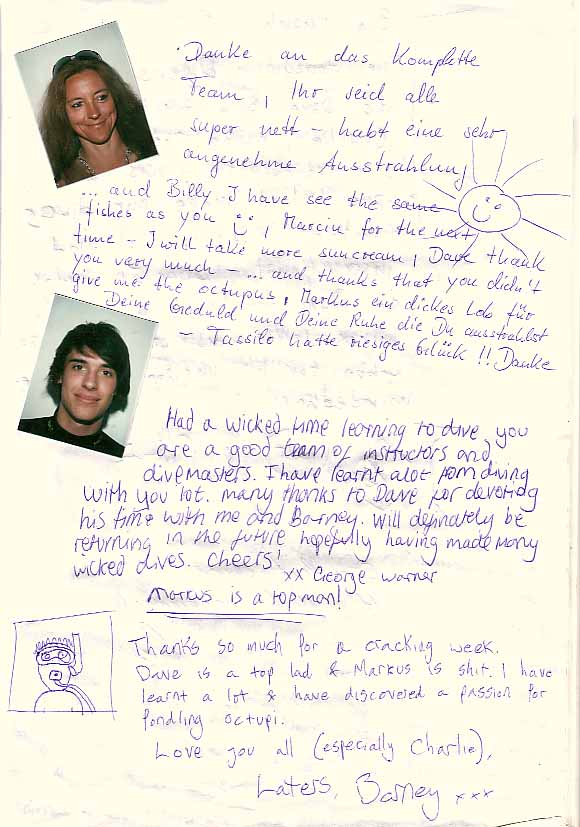 Danke an das Komplette
Team, Ihr seid alle
super nett - habt eine sehr
angenehme Ausstrahlung
... and Billy I have see the same
fishes as you, Marcin for the next
time - I will take more suncream, Dave thank
you very much - ... and thanks that you didn't
give me the octupus, Markus ein dickes Lob für
Deine Geduld und Deine Ruhe die Du ausstrahlst
- Tassilo hatte riesiges Glück !! Danke
Had a wicked time learning to dive you
are a good team of instructors and
divemasters. I have learnt alot from diving
with you lot. Many thanks to Dave for devoting
his time with me and Barney. Will definately be
returning in the future hopefully having made many
wicked dives. Cheers!
xx George Warner
Marcus is a top man!
Thanks so much for a cracking week.
Dave is a top lad & Markus is shit. I have
learnt a lot & have discovered a passion for
fondling octupi.
Love you all (especially Charlie),
Laters, Barney xxx